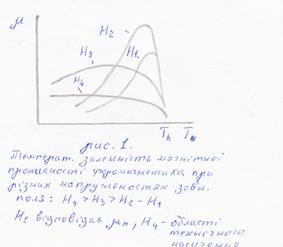 μ
H₂
H₁
H₃
H₄
Tк Tм
рис. 1.
Температ. залежність магнітної
проникності феромагнетика при
різних напруженостях зовн.
поля: H₄ > H₃ > H₂ - H₁
H₁ відповідає μп, H₄ - області
технічного
насичення